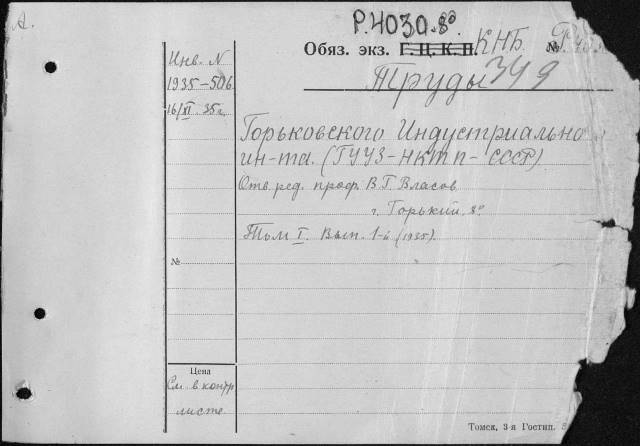 А.
Р.4030.8°
Обяз. экз. Г. Ц. К. П. КНБ. №
Труды 349
Инв. N
1935-506
16/XI. 35 г.
Горьковского Индустриально
ин-та. (ГУУЗ-НКТП-СССР)
Отв. ред. проф. В. Г. Власов
г. Горький. 8°
Том I. Вып. 1-й (1935).
№
Цена
См. в контр
листе
Томск, 3-я Гостип.